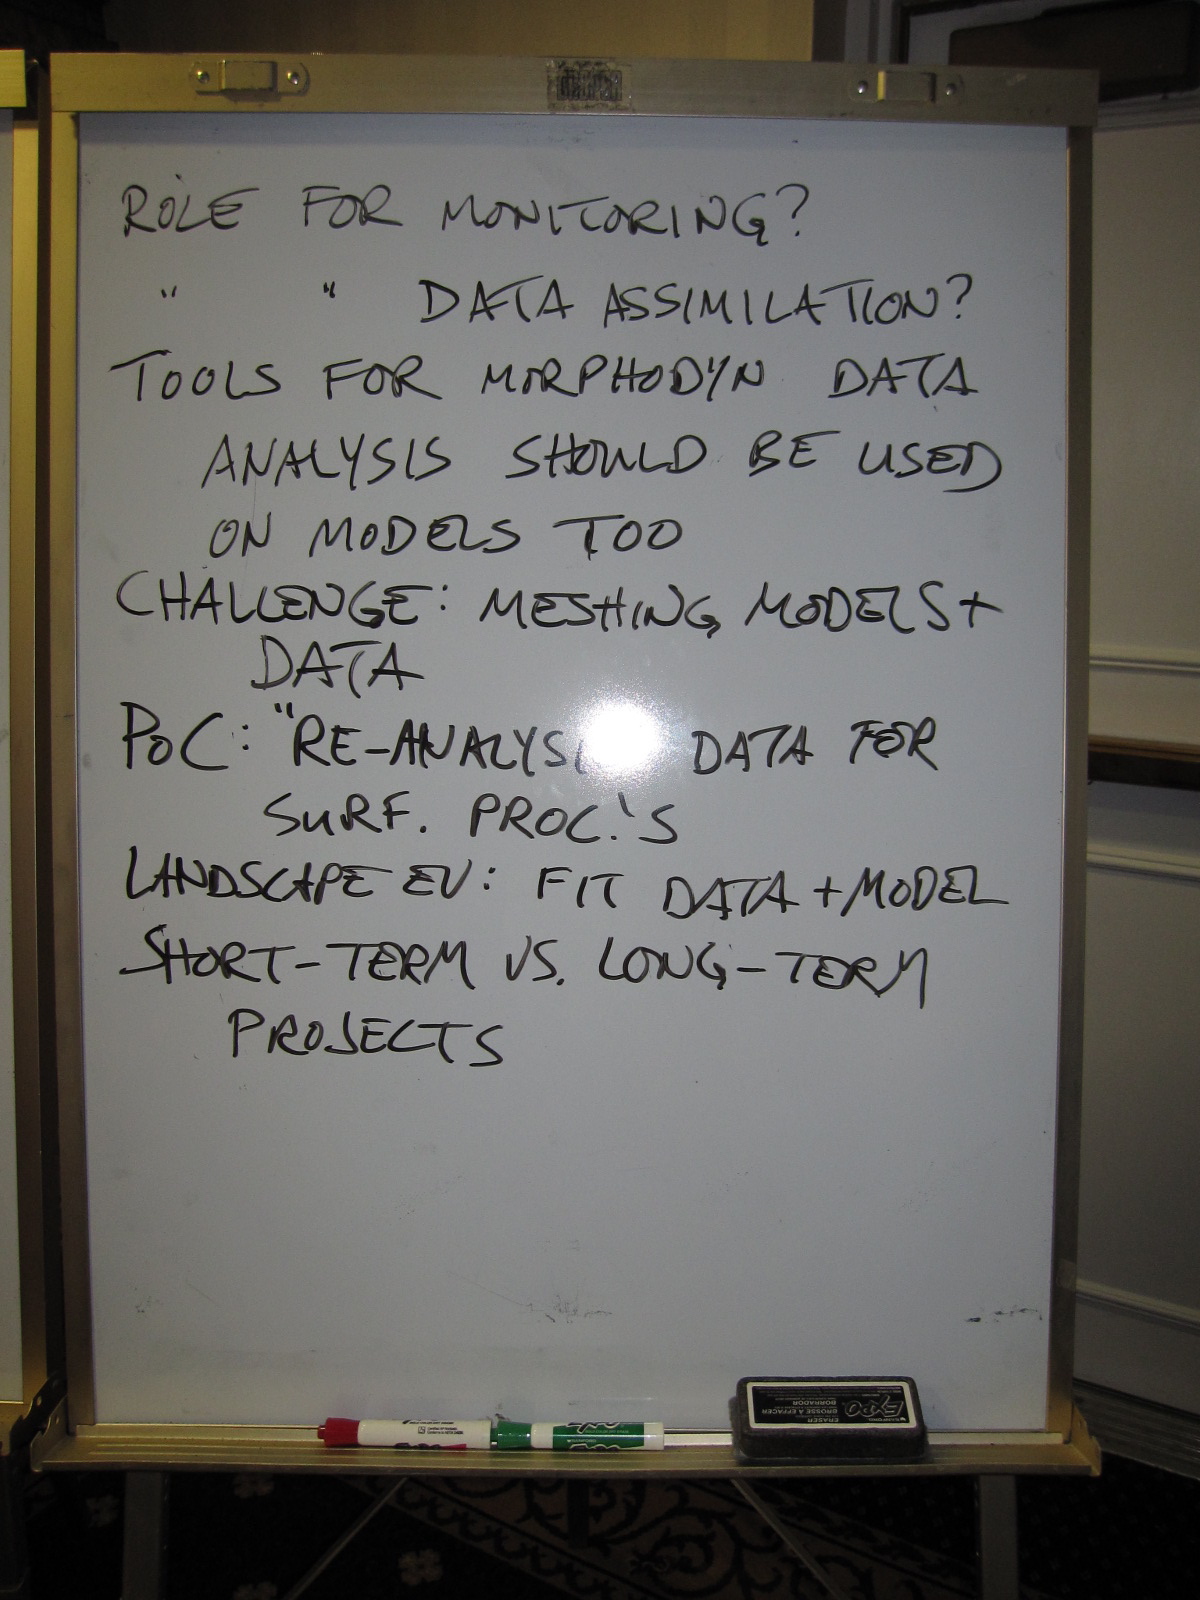 ROLE FOR MONITORING?
" " DATA ASSIMILATION?
TOOLS FOR MORPHODYN DATA
ANALYSIS SHOULD BE USED
ON MODELS TOO
CHALLENGE: MESHING MODELS +
DATA
POC: "RE-ANALYSI DATA FOR
SURF. PROC.'S
LANDSCAPE EV: FIT DATA + MODEL
SHORT-TERM VS. LONG-TERM
PROJECTS
EXPO
ERASER
BROSSE À EFFACER
BORRADOR